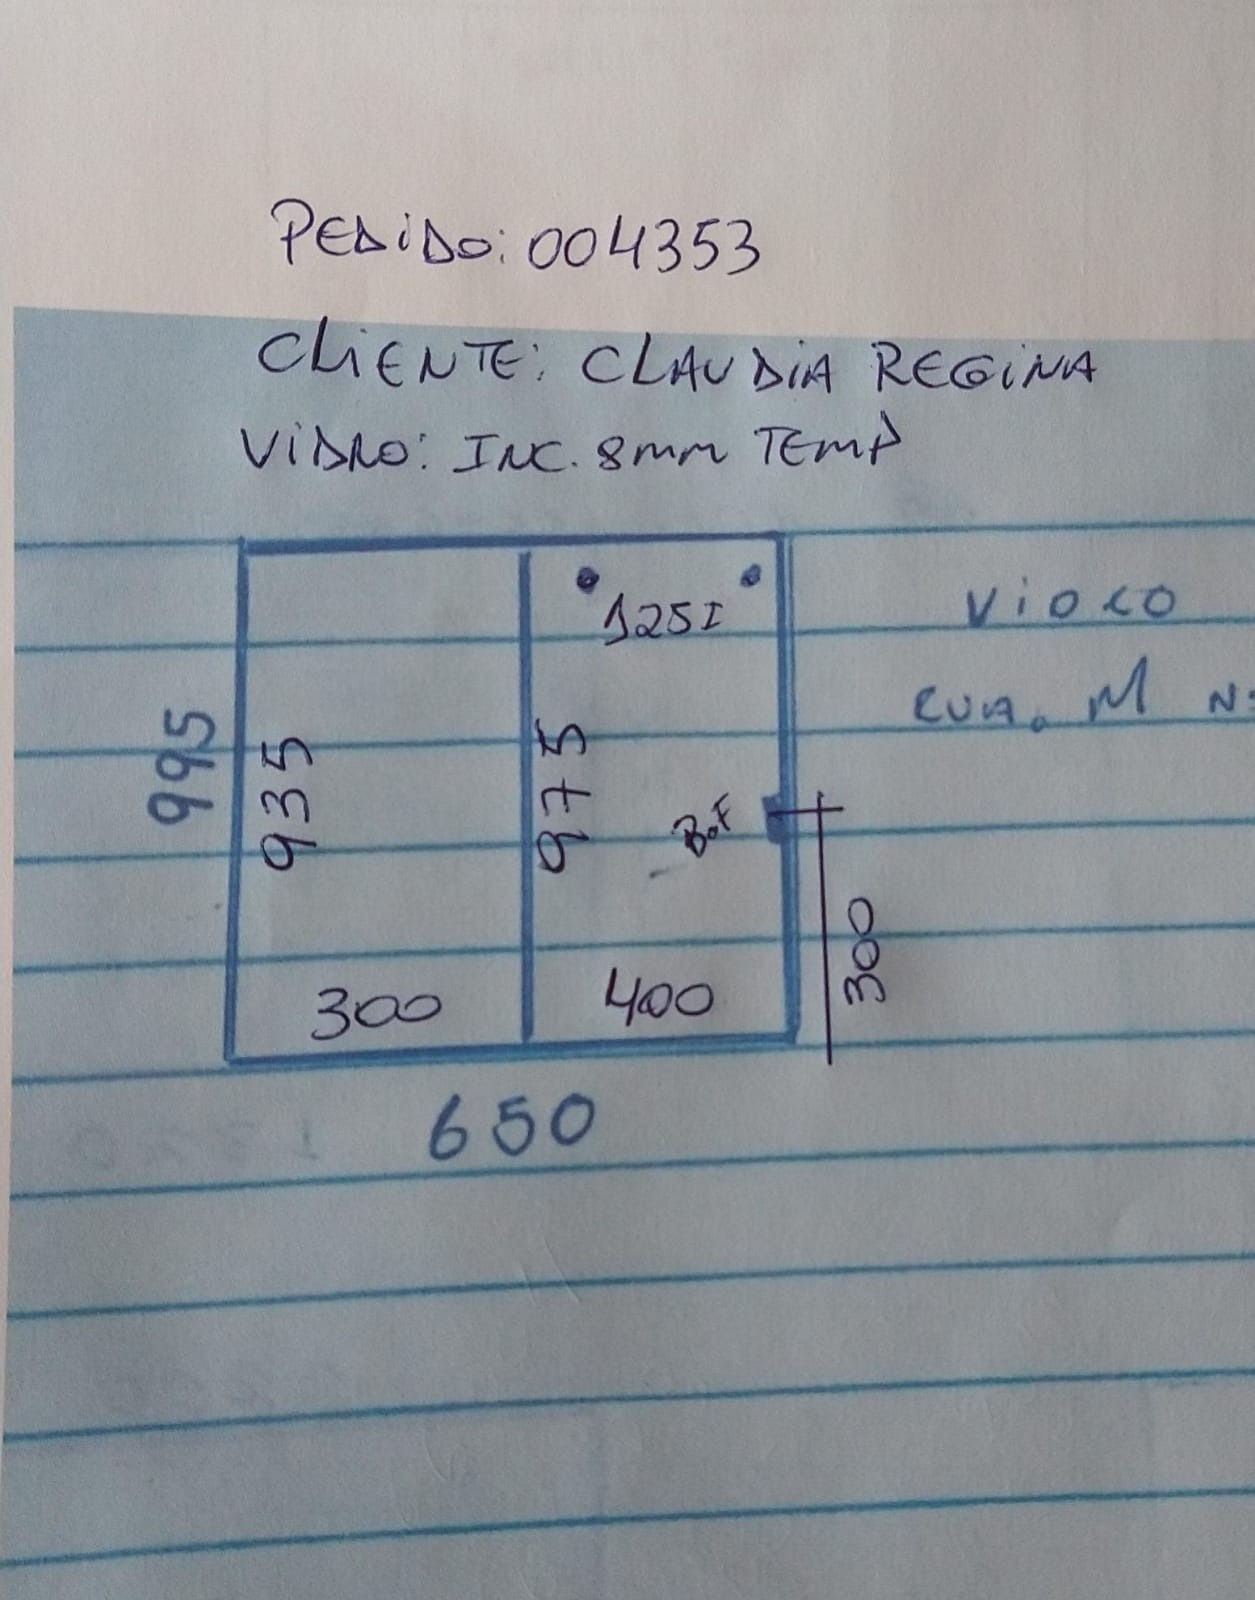 PEDIDO: 004353
CLIENTE: CLAUDIA REGINA
VIDRO: INC. 8mm TEMP
1251
995
935
975
BAF
300
400
300
650
RUA. M N: